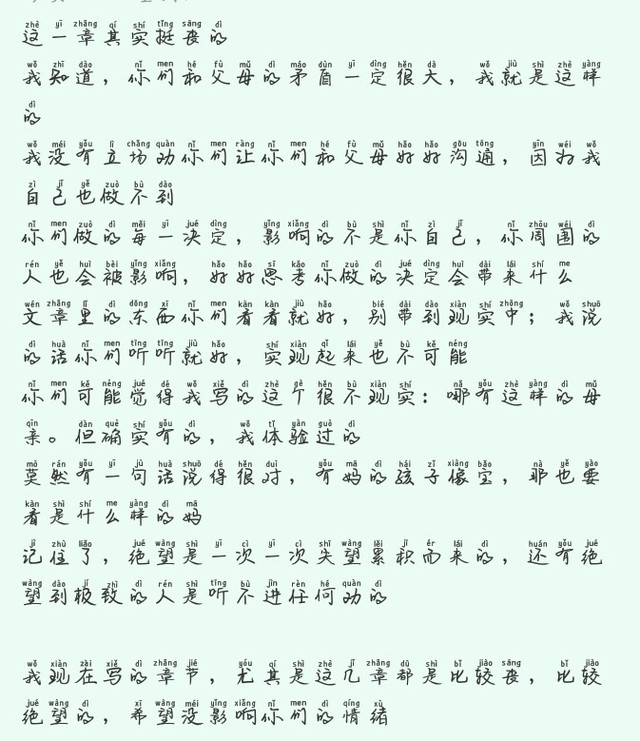 zhè yī zhāng qí shí tǐng sàng dì
这一章其实挺丧的
wǒ zhī dào nǐ men hé fù mǔ dì máo dùn yī dìng hěn dà wǒ jiù shì zhè yàng
我知道，你们和父母的矛盾一定很大，我就是这样
dì
的
wǒ méi yǒu lì chǎng quàn nǐ men ràng nǐ men hé fù mǔ hǎo hǎo gōu tōng yīn wéi wǒ
我没有立场劝你们让你们和父母好好沟通，因为我
zì jǐ yě zuò bù dào
自己也做不到
nǐ men zuò dì měi yī jué dìng yǐng xiǎng dì bù shì nǐ zì jǐ nǐ zhōu wéi dì
你们做的每一决定，影响的不是你自己，你周围的
rén yě huì bèi yǐng xiǎng hǎo hǎo sī kǎo nǐ zuò dì jué dìng huì dài lái shí me
人也会被影响，好好思考你做的决定会带来什么
wén zhāng lǐ dì dōng xī nǐ men kàn kàn jiù hǎo bié dài dào xiàn shí zhōng wǒ shuō
文章里的东西你们看看就好，别带到现实中；我说
dì huà nǐ men tīng tīng jiù hǎo shí xiàn qǐ lái yě bù kě néng
的话你们听听就好，实现起来也不可能
nǐ men kě néng jué dé wǒ xiě dì zhè gè hěn bù xiàn shí nǎ yǒu zhè yàng dì mǔ
你们可能觉得我写的这个很不现实：哪有这样的母
qīn dàn què shí yǒu dì wǒ tǐ yàn guò dì
亲。但确实有的，我体验过的
mò rán yǒu yī jù huà shuō dé hěn duì yǒu mā dì hái zǐ xiàng bǎo nà yě yào
莫然有一句话说得很对，有妈的孩子像宝，那也要
kàn shì shí me yàng dì mā
看是什么样的妈
jì zhù liǎo jué wàng shì yī cì yī cì shī wàng lěi jī ér lái dì huán yǒu jué
记住了，绝望是一次一次失望累积而来的，还有绝
wàng dào jí zhì dì rén shì tīng bù jìn rèn hé quàn dì
望到极致的人是听不进任何劝的
wǒ xiàn zài xiě dì zhāng jié yóu qí shì zhè jǐ zhāng dū shì bǐ jiào sàng bǐ jiào
我现在写的章节，尤其是这几章都是比较丧，比较
jué wàng dì xī wàng méi yǐng xiǎng nǐ men dì qíng xù
绝望的，希望没影响你们的情绪